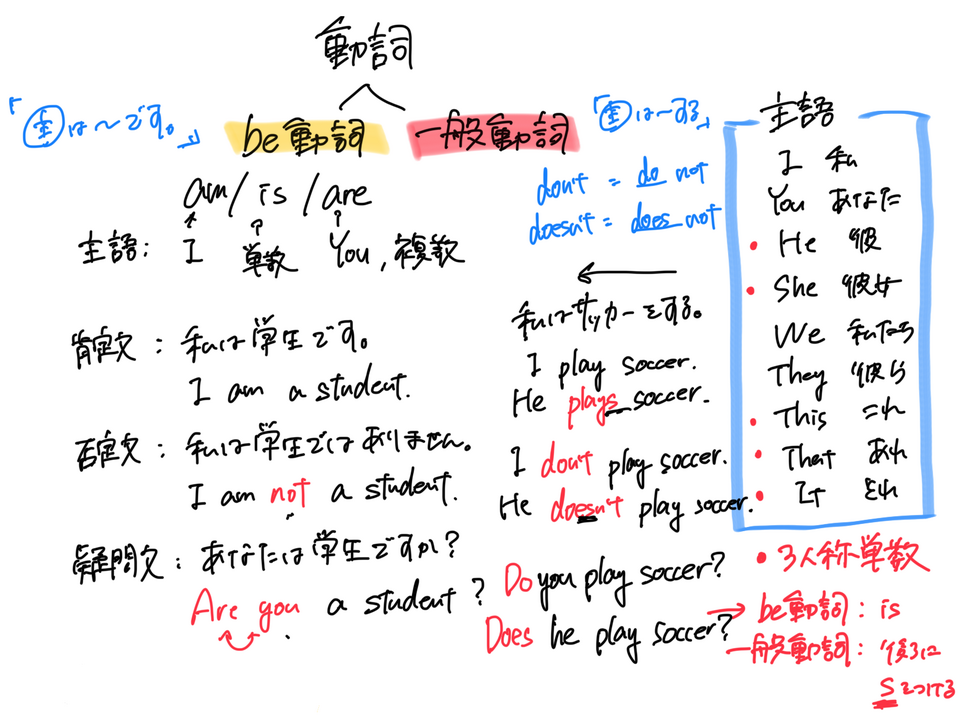 動詞
「主は〜です。」
be動詞
一般動詞
「主は〜する」
am / is / are
主語: I 単数 You, 複数
don't = do not
doesn't = does not
肯定文: 私は学生です。
I am a student.
否定文: 私は学生ではありません。
I am not a student.
疑問文: あなたは学生ですか?
Are you a student?
私はサッカーをする。
I play soccer.
He plays soccer.
I don't play soccer.
He doesn't play soccer.
Do you play soccer?
Does he play soccer?
主語
I 私
You あなた
• He 彼
• She 彼女
We 私たち
They 彼ら
• This これ
• That あれ
• It それ
• 3人称単数
→ be動詞: is
一般動詞: 後ろに
sをつける